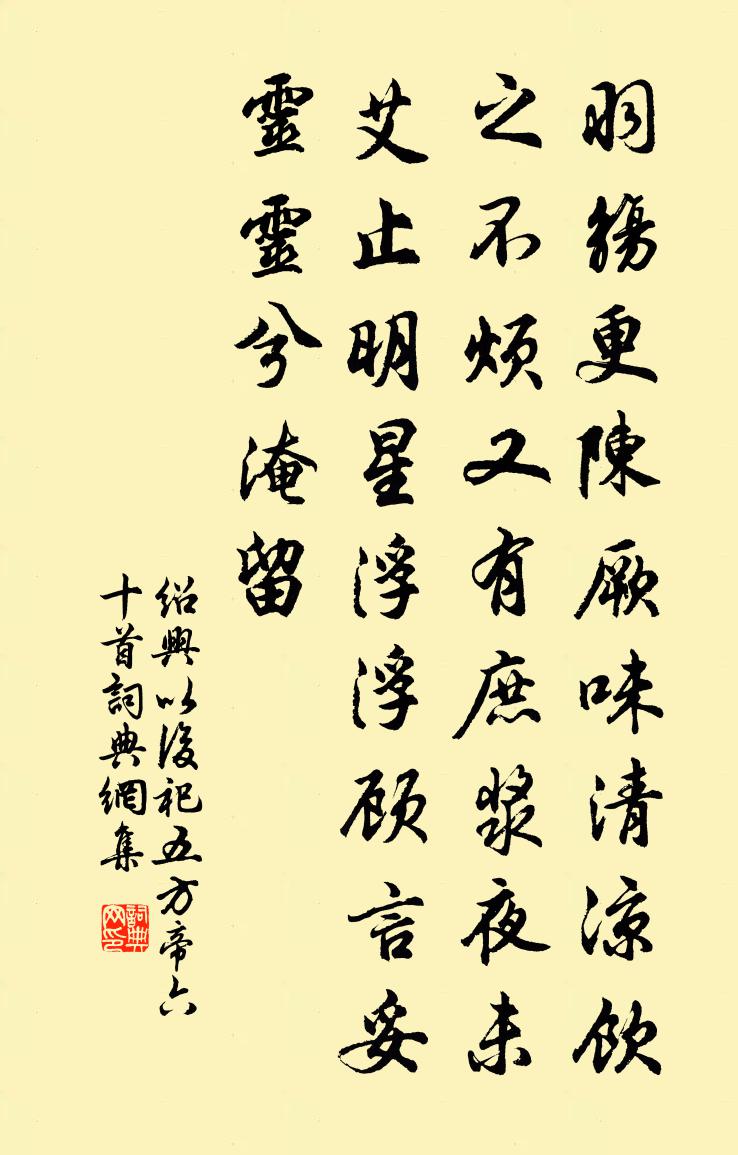 羽觴更陳厥味清涼飲
之不煩又有庶漿夜未
艾止明星浮浮顧言妥
靈靈兮淹留
紹興以後祀五方帝六
十首詞典網集
詞典
网印